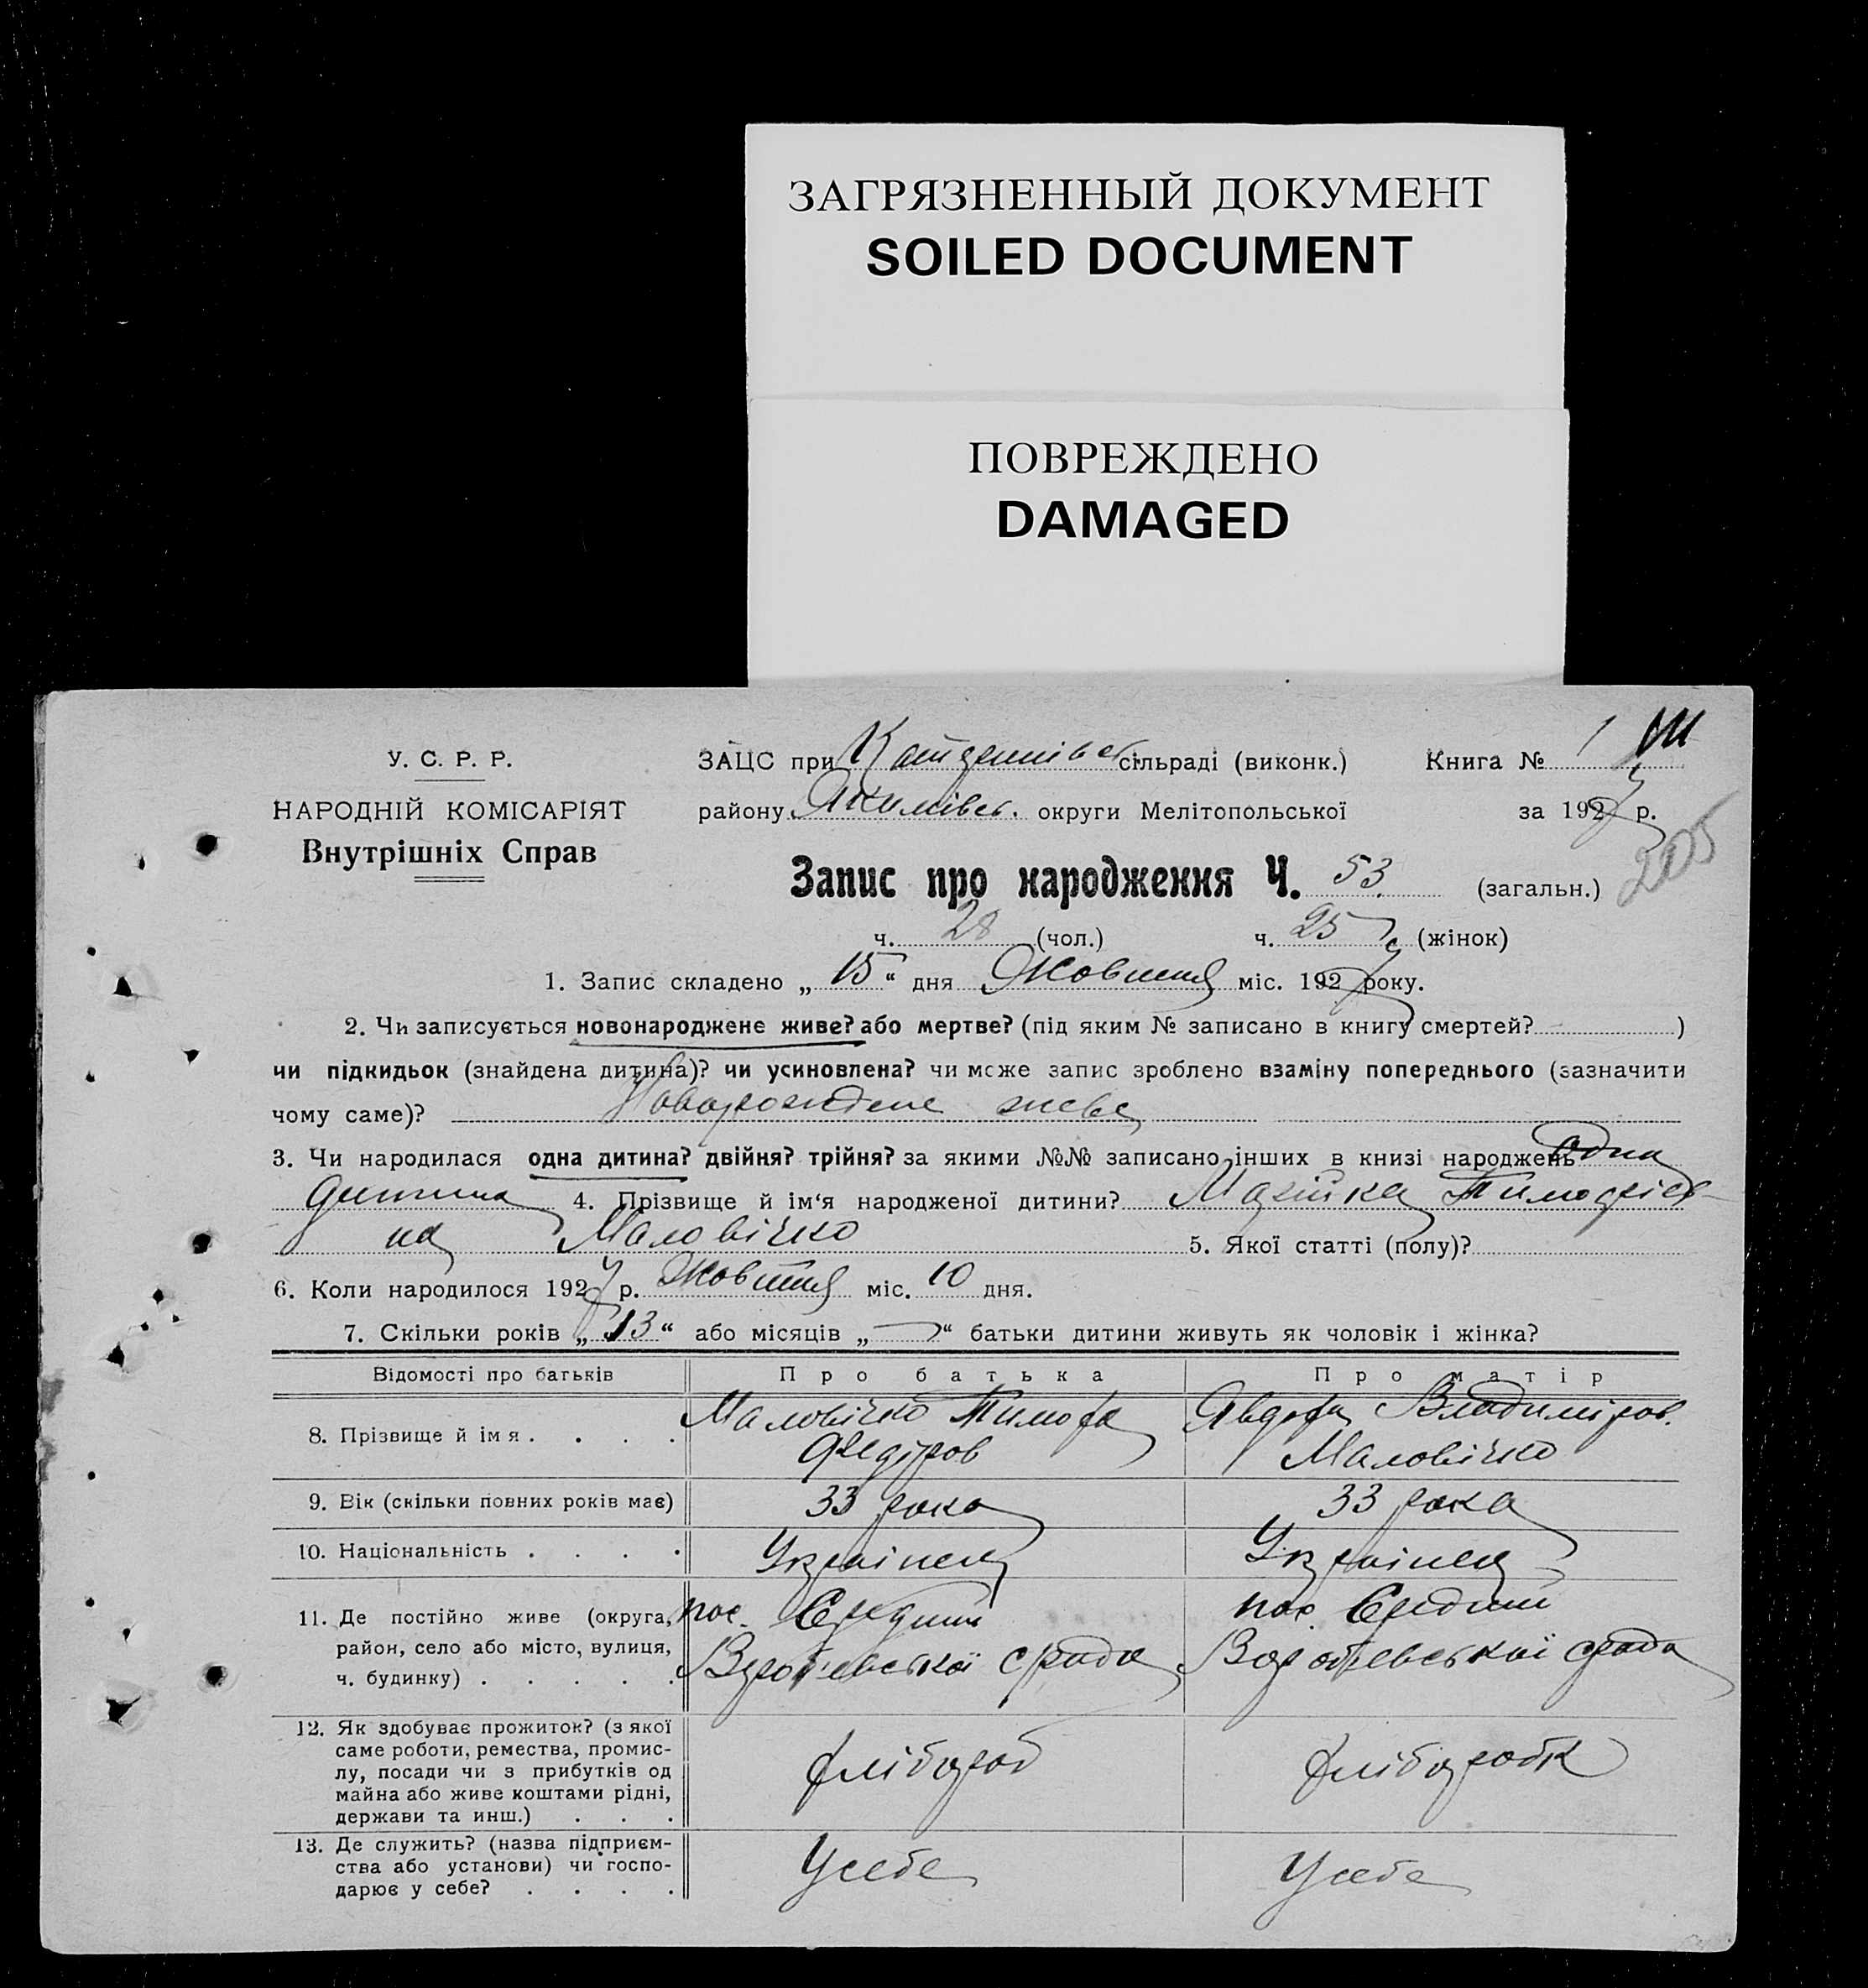 ЗАГРЯЗНЕННЫЙ ДОКУМЕНТ
SOILED DOCUMENT
ПОВРЕЖДЕНО
DAMAGED
У. С. Р. Р.
НАРОДНІЙ КОМІСАРІЯТ
Внутрішніх Справ
ЗАЦС при сільраді (виконк.) Книга № 1
району Якимівсь. округи Мелітопольської за 1927 р.
205
Запис про народження Ч. 53 (загальн.)
ч. 28 (чол.) ч. 25 (жінок)
1. Запис складено „ 15 “ дня Жовтня міс. 1927 року.
2. Чи записується новонароджене живе? або мертве? (під яким № записано в книгу смертей? )
чи підкидьок (знайдена дитина)? чи усиновлена? чи може запис зроблено взаміну попереднього (зазначити
чому саме)? живе
3. Чи народилася одна дитина? двійня? трійня? за якими №№ записано інших в книзі народжень одна
дитина 4. Прізвище й ім‘я народженої дитини?
на Маловічко 5. Якої статті (полу)?
6. Коли народилося 1927 р. Жовтня міс. 10 дня.
7. Скільки років „ 13 “ або місяців „ — “ батьки дитини живуть як чоловік і жінка?
Відомості про батьків Про батька Про матір
8. Прізвище й імя . . . . Маловічко Тимофа Федіров Явдоха Владиміров. Маловічко
9. Вік (скільки повних років має) 33 рока 33 рока
10. Національність . . . . Українец Українец
11. Де постійно живе (округа, район, село або місто, вулиця, ч. будинку) . . . . . пос. Середній с/рада пос. Средній с/рада
12. Як здобуває прожиток? (з якої саме роботи, ремества, промислу, посади чи з прибутків од майна або живе коштами рідні, держави та инш.) . . . хлібороб хліборобк
13. Де служить? (назва підприємства або установи) чи господарює у себе? . . . . У себе У себе